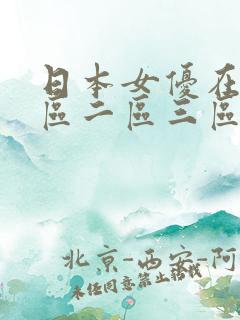 日本女優在
區二區三區
北京-西安-阿
未任同意禁止轉載